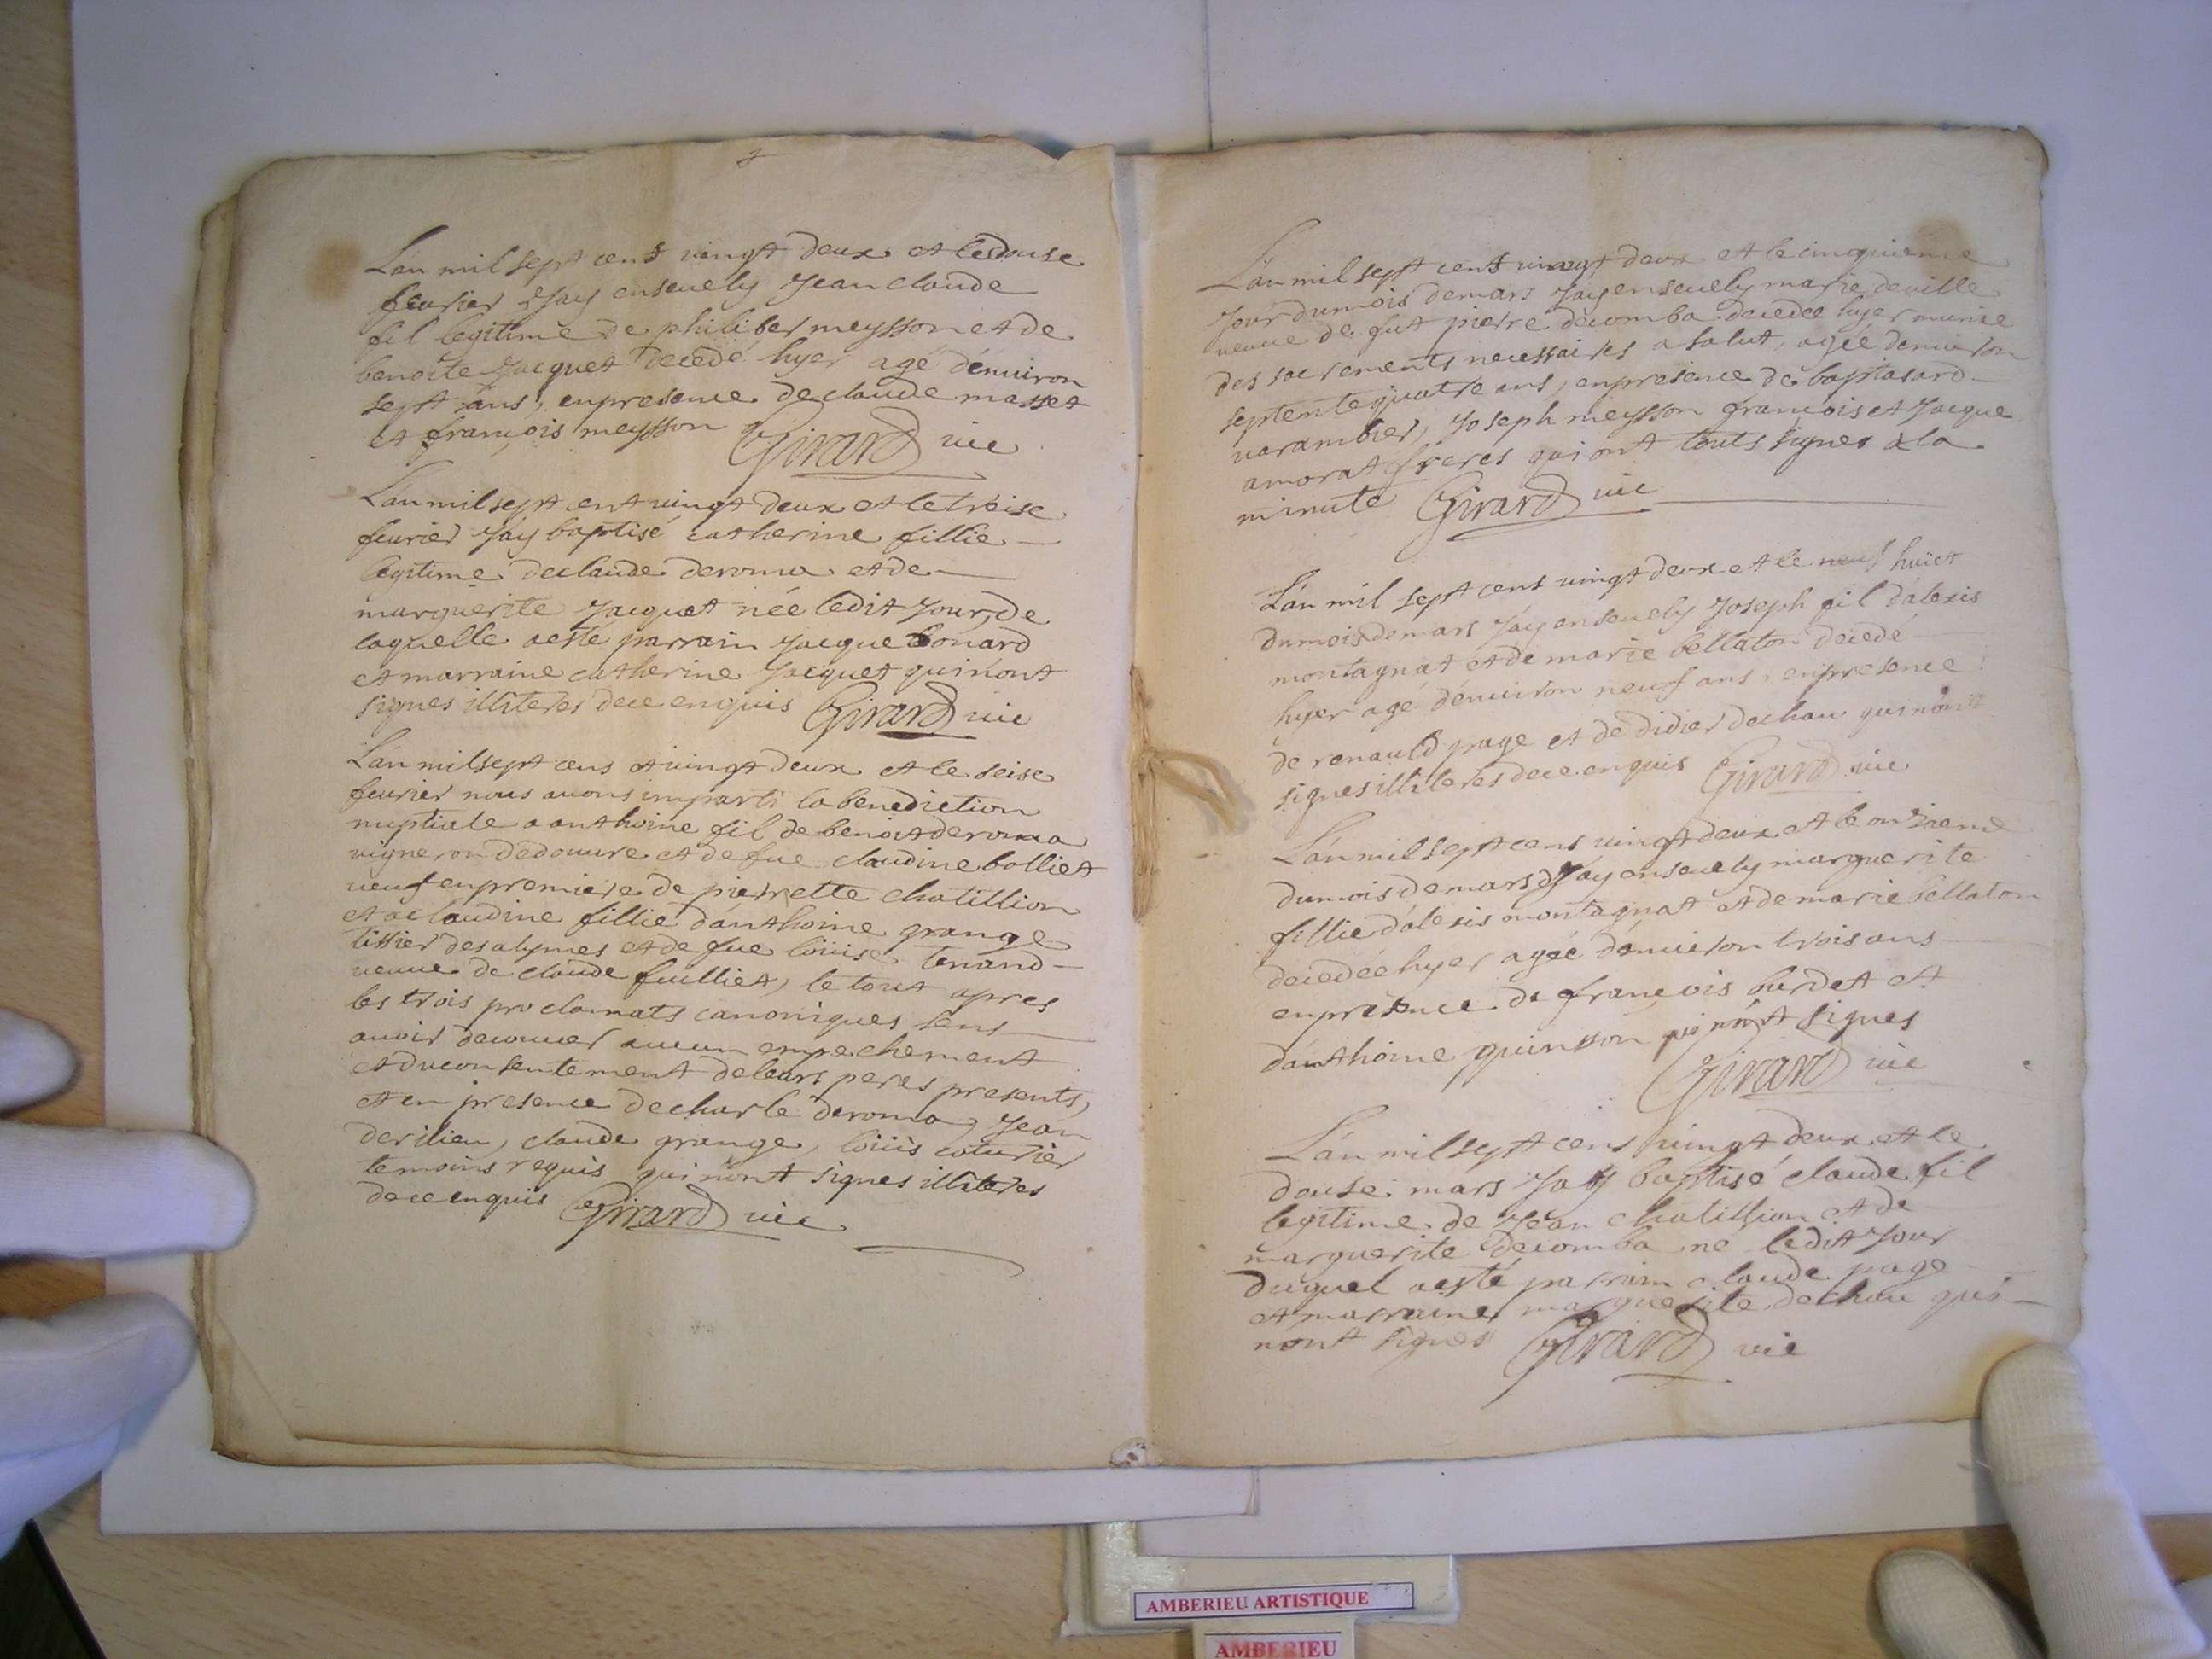 L'an mil sept cent vingt deux et le douse
feuvrier Jay enseuely Jean claude
fil legitime de philiber meysson et de
benoite Jacquet decedé hyer agé d'enuiron
sept ans, enpresence de claude masset
et françois meysson Girard vic
L'an mil sept cent vingt deux et le treise
feurier Jay baptisé catherine fillie
legitime de claude deroma et de
marguerite Jacquet née ledit Jour, de
laquelle aeste parrain Jacque bonard
et marraine catherine Jacquet qui n'ont
signes illiteres dece enquis Girard vic
L'an mil sept cens et vingt deux et le seise
feurier nous auons imparti la benediction
nuptiale a anthoine fil de benoit deroma
vigneron dedouure et de fue claudine bolliet
veuf enpremiere de pierrette chatillion
et a claudine fillie d'anthoine grange
tissier des alymes et de fue louise tenand
veuue de claude fuilliet, le tout apres
les trois proclamats canoniques sens
auoir decouuer aucun empechement
et du consentement de leurs peres presents,
et en presence de charle deroma, Jean
derilieu, claude grange, louis couturier
temoins requis qui n'ont signes illiteres
dece enquis Girard vic
L'an mil sept cent vingt deux et le cinquieme
Jour du mois de mars Jay enseuely marie deville
veuue de fut pierre decomba decedee hyer munie
des sacrements necessaires a salut, agée d'enuiron
septente quatre ans, enpresence de baptasard
varambier, Joseph meysson françois et Jacque
amorat freres qui ont touts signes a la
minute Girard vic
L'an mil sept cens vingt deux et le neuf huict
du mois de mars Jay enseuely Joseph fil d'alexis
montagnat et de marie bellaton decedé
hyer agé d'enuiron neuf ans, enpresence
de renauld page et de didier dechau qui n'ont
signes illiteres dece enquis Girard vic
L'an mil sept cens vingt deux et le onzieme
du mois de mars Jay enseuely marguerite
fillie d'alexis montagnat et de marie bellaton
decedée hyer agée d'enuiron trois ans
enpresence de françois burdet et
d'anthoine guinson qui n'ont signes
Girard vic
L'an mil sept cens vingt deux et le
douse mars Jay baptisé claude fil
legitime de Jean chatillion et de
marguerite decomba né ledit Jour
duquel aesté parrain claude page
et marraine marguerite dechau qui
nont signes Girard vic
AMBERIEU ARTISTIQUE
AMBERIEU